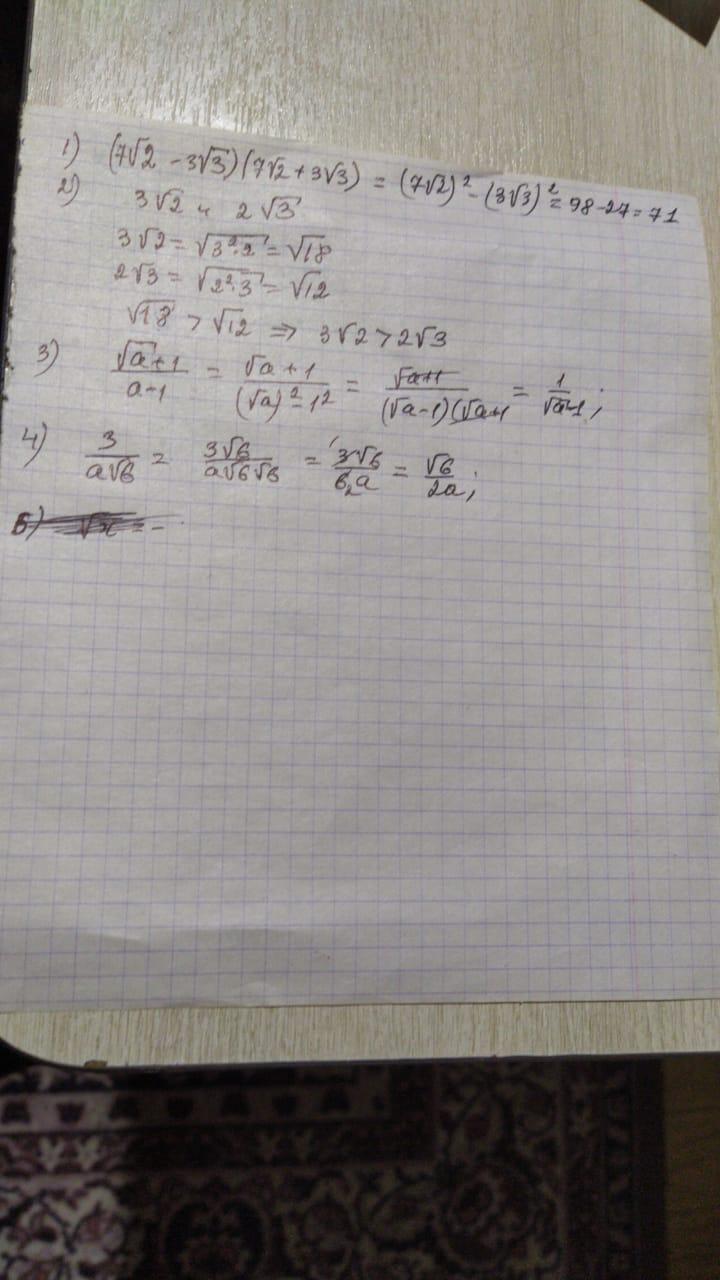 1) (7√2 - 3√3)(7√2 + 3√3) = (7√2)² - (3√3)² = 98 - 27 = 71
2) 3√2 и 2√3
3√2 = √3²·2 = √18
2√3 = √2²·3 = √12
√18 > √12 ⇒ 3√2 > 2√3
3) (√a+1)/(a-1) = (√a+1)/((√a)²-1²) = (√a+1)/((√a-1)(√a+1) = 1/(√a-1);
4) 3/(a√6) = 3√6/(a√6√6) = ¹3√6/(6₂a) = √6/(2a);
5) √x = -